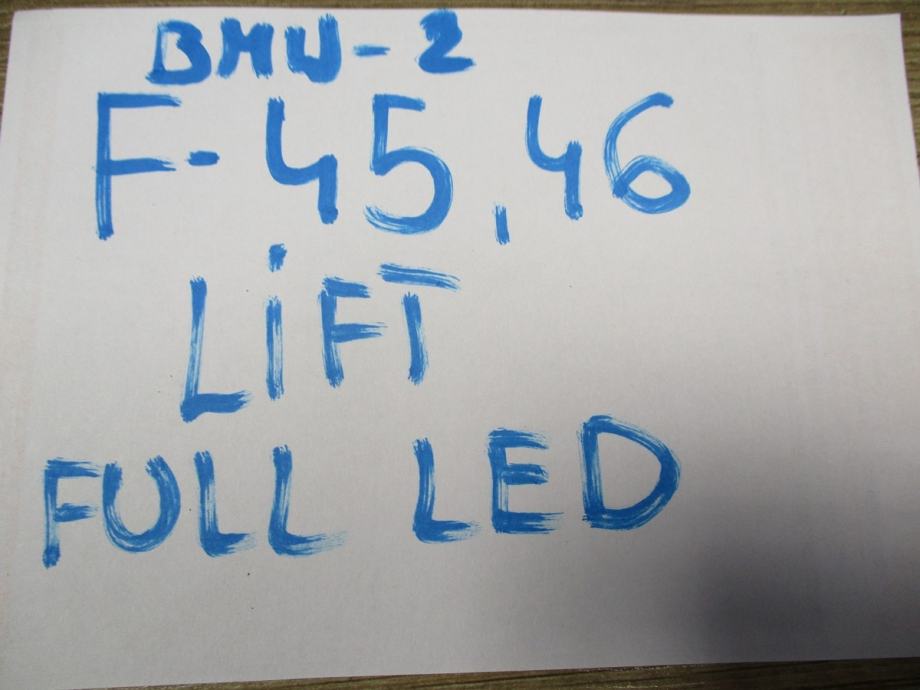 BMW-2
F-45,46
LiFT
FULL LED